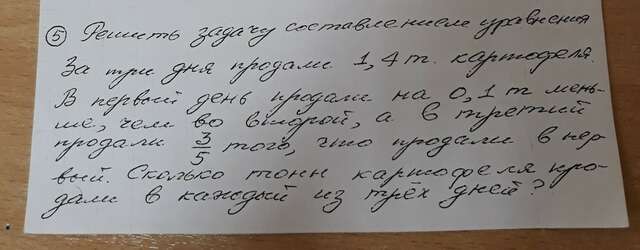 ⑤ Решить задачу составлением уравнения
За три дня продали 1,4 т. картофеля.
В первый день продали на 0,1 т мень-
ше, чем во второй, а в третий
продали 3/5 того, что продали в пер-
вый. Сколько тонн картофеля про-
дали в каждый из трёх дней?